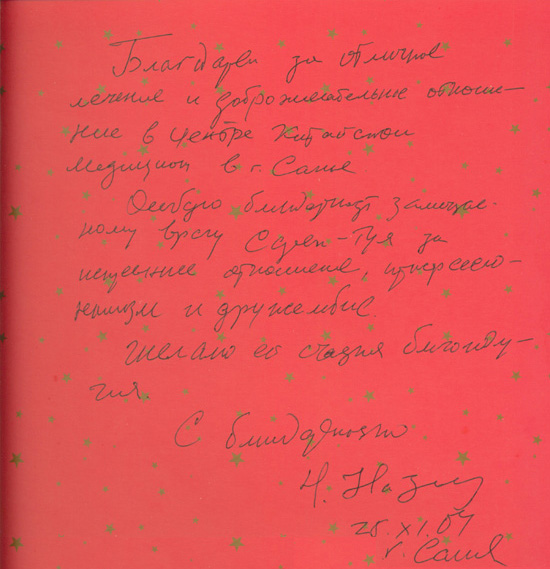 Благодарен за отличное
лечение и доброжелательное отноше-
ние в центре Китайской
медицины в г. Санья
Особую благодарность замеча-
ному врачу за
отношение, профессио-
нализм и дружелюбие.
Желаю ей счастья благополу-
чия.
С благодарностью
Н.
25.XI.07
г. Санья